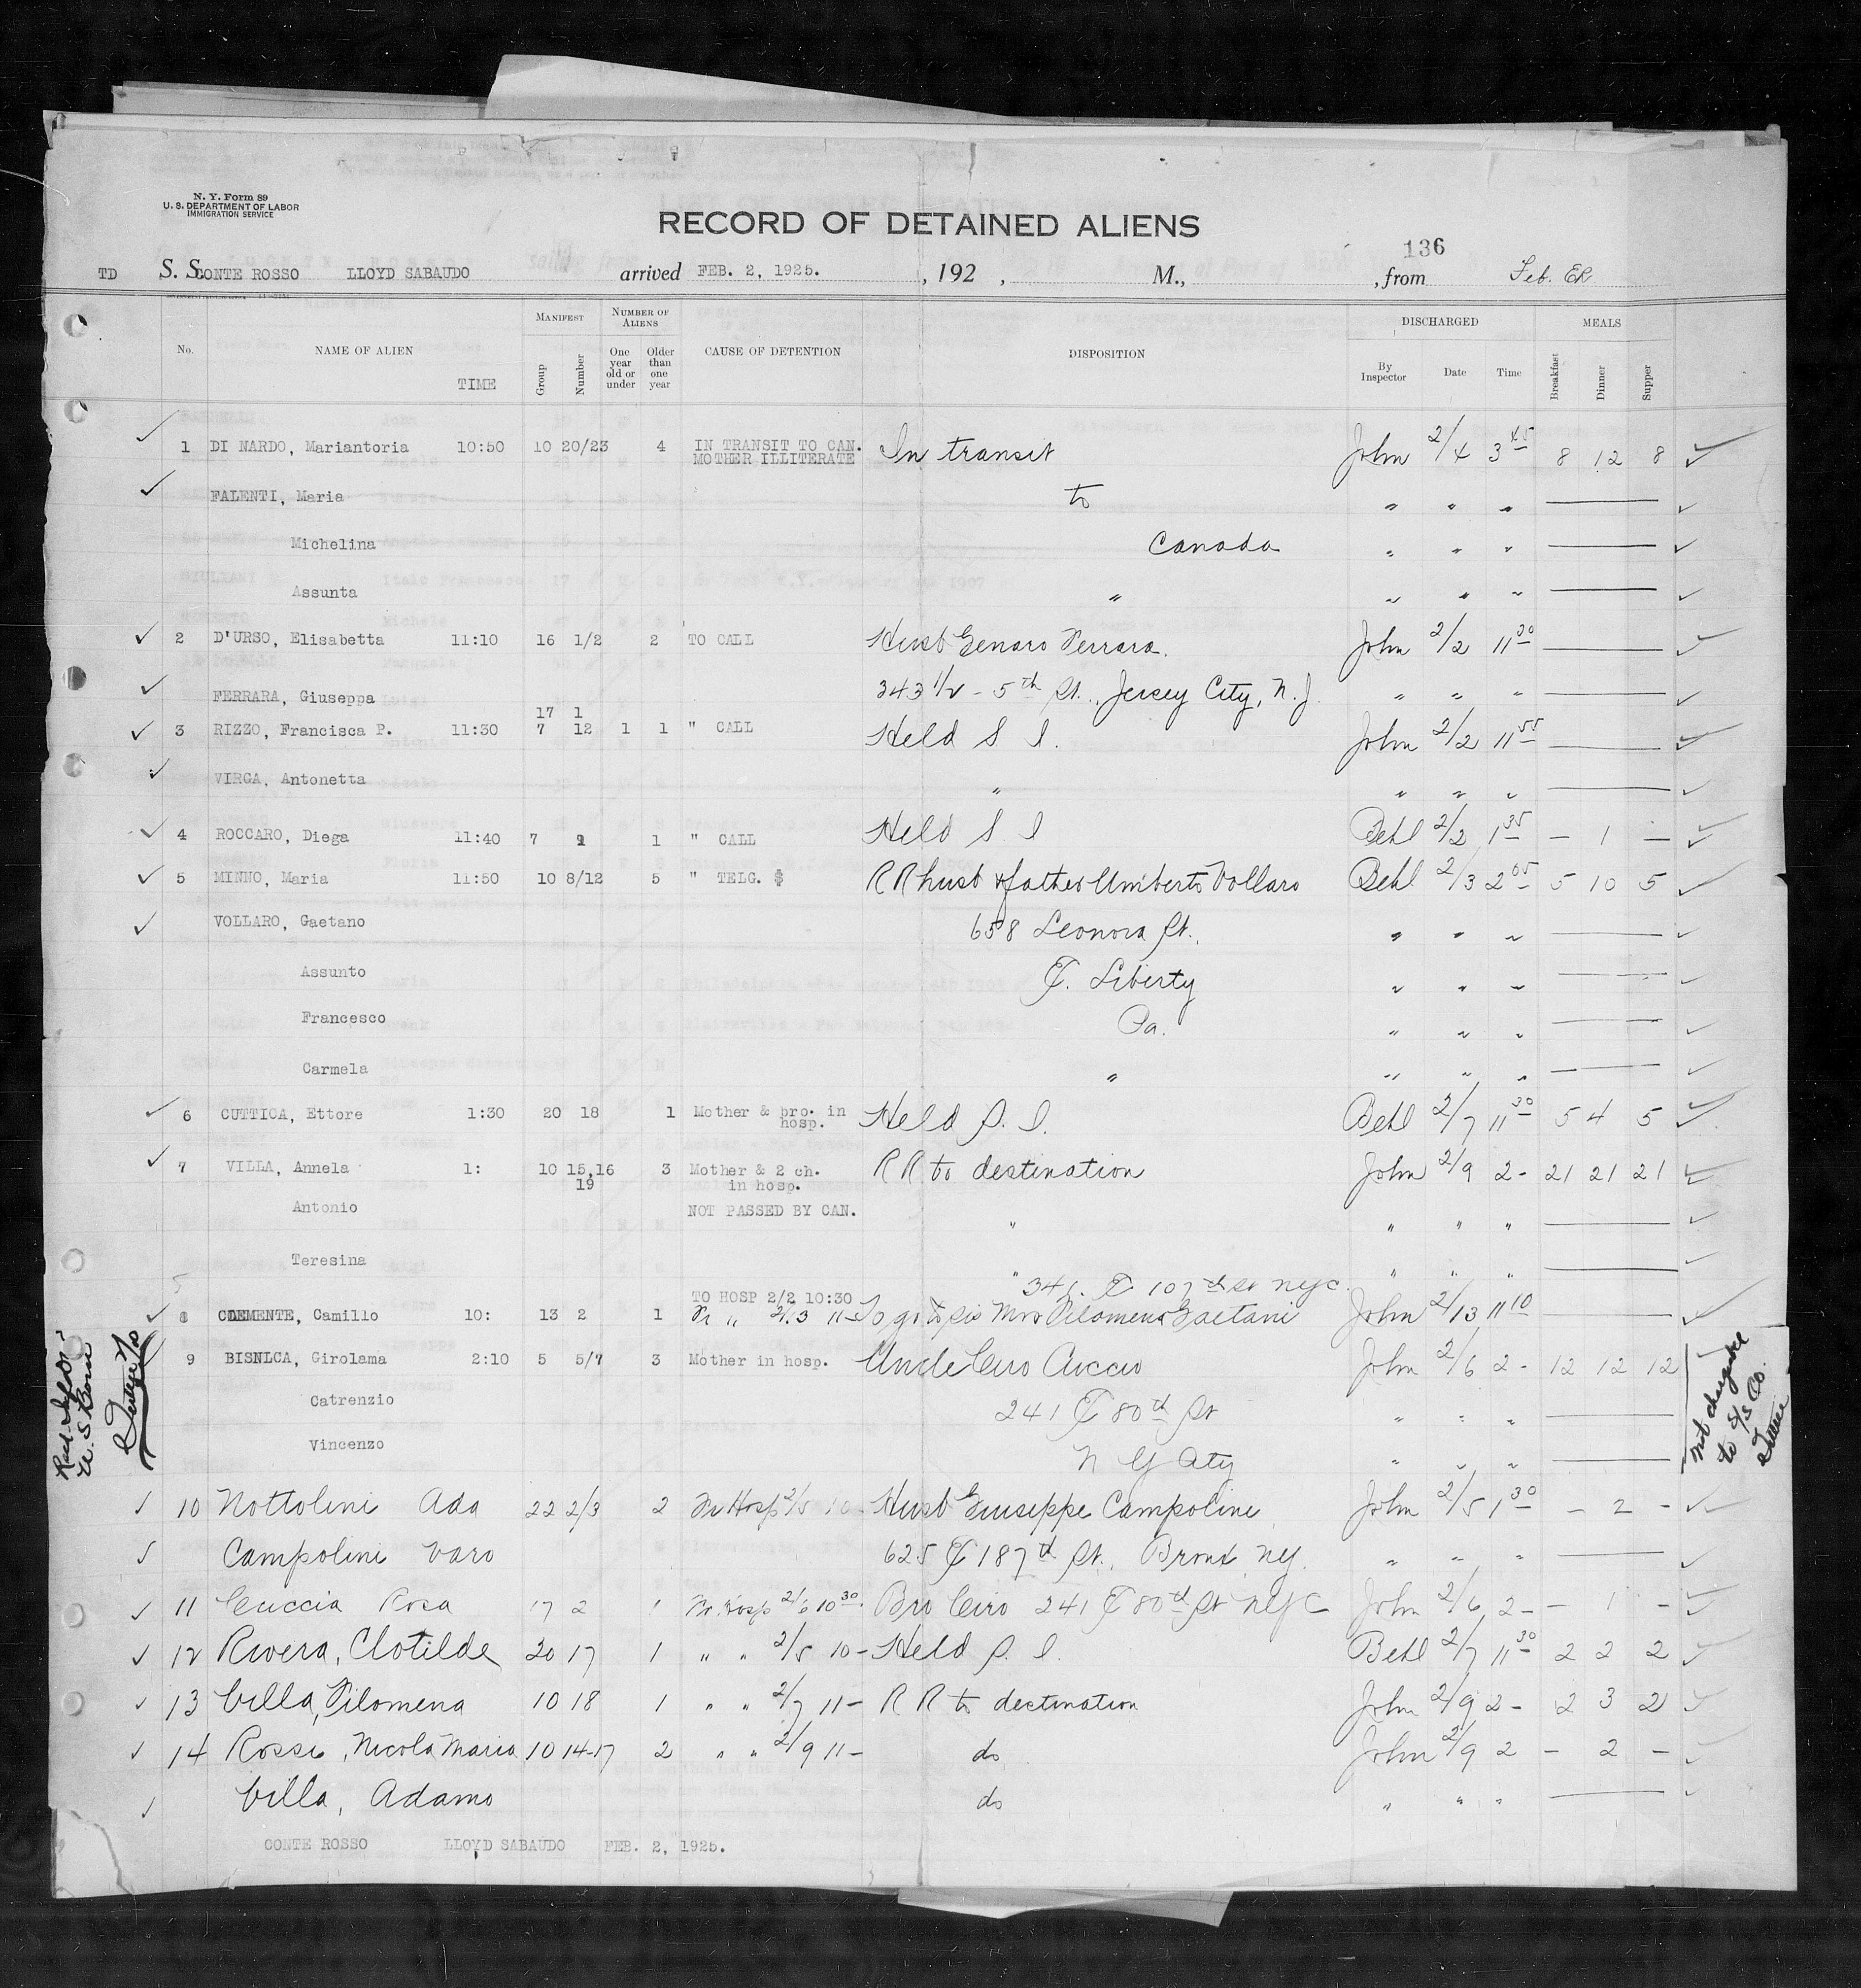 N. Y. Form 89
U. S. DEPARTMENT OF LABOR
IMMIGRATION SERVICE
RECORD OF DETAINED ALIENS
136
TD S. S. CONTE ROSSO LLOYD SABAUDO arrived FEB. 2, 1925. , 192 , M., , from Feb. ER
No. NAME OF ALIEN TIME MANIFEST Group Number NUMBER OF ALIENS One year old or under Older than one year CAUSE OF DETENTION DISPOSITION DISCHARGED By Inspector Date Time MEALS Breakfast Dinner Supper
1 DI NARDO, Mariantoria 10:50 10 20/23 4 IN TRANSIT TO CAN. MOTHER ILLITERATE In transit John 2/4 3 45 8 12 8
FALENTI, Maria to " " "
Michelina Canada " " "
Assunta " " " "
2 D'URSO, Elisabetta 11:10 16 1/2 2 TO CALL Husb Genaro Ferrara. John 2/2 11 30
FERRARA, Giuseppa 343 1/2 - 5th St., Jersey City, N.J. " " "
17 1
3 RIZZO, Francisca P. 11:30 7 12 1 1 " CALL Held S I. John 2/2 11 55
VIRGA, Antonetta " " " "
4 ROCCARO, Diega 11:40 7 1 " CALL Held S I Behl 2/2 1 35 — 1 —
5 MINNO, Maria 11:50 10 8/12 5 " TELG. $ RR husb & father Umberto Vollaro Behl 2/3 2 05 5 10 5
VOLLARO, Gaetano 658 Leonora St. " " "
Assunto E. Liberty " " "
Francesco Pa. " " "
Carmela " " " "
6 CUTTICA, Ettore 1:30 20 18 1 Mother & bro. in hosp. Held S. I. Behl 2/7 11 30 5 4 5
7 VILLA, Annela 1: 10 15,16 19 3 Mother & 2 ch. in hosp. RR to destination John 2/9 2 - 21 21 21
Antonio NOT PASSED BY CAN. " " " "
Teresina " " " "
TO HOSP 2/2 10:30 341 E 107th St NYC.
8 CLEMENTE, Camillo 10: 13 2 1 Fr " 2/13 11- To go to sis Mrs Filomena Gaetani John 2/13 11 10
9 BISNLCA, Girolama 2:10 5 5/7 3 Mother in hosp. Uncle Ciro Cuccio John 2/6 2 - 12 12 12
Catrenzio 241 E 80th St " " "
Vincenzo N Y City " " "
U. S. Born
Not chargeable to S/S Co.
10 Nottolini Ada 22 2/3 2 Fr Hosp 2/5 10 - Husb Giuseppe Campoline John 2/5 1 30 - 2 -
Campolini Varo 625 E 187th St., Bronx, NY. " " "
11 Cuccia Rosa 17 2 1 Fr Hosp 2/6 10 30 Bro Ciro 241 E 80th St NYC John 2/6 2 - - 1 -
12 Rivera, Clotilde 20 17 1 " " 2/5 10 - Held S. I. Behl 2/7 11 30 2 2 2
13 Villa, Filomena 10 18 1 " " 2/7 11 - RR to destination John 2/9 2 - 2 3 2
14 Rossi, Nicola Maria 10 14-17 2 " " 2/9 11 - do John 2/9 2 - 2 -
Villa, Adamo do " " "
CONTE ROSSO LLOYD SABAUDO FEB. 2, 1925.